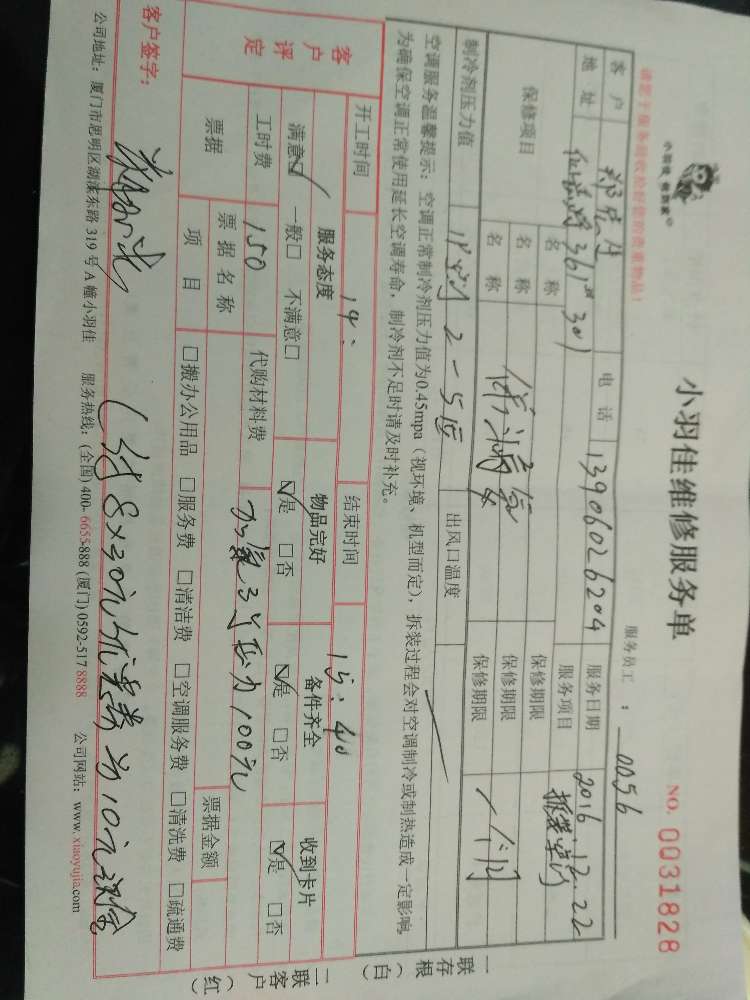 小羽佳 做到家
请您于服务前收拾好您的贵重物品！
小羽佳维修服务单
NO. 0031828
服务员工： 0056
客户 电话 13906026204 服务日期 2016.12.22
地址 361# 301 服务项目 拆装
保修项目 名称 保修期限
名称 保修期限
名称 保修期限 一个月
制冷剂压力值 出风口温度
空调服务温馨提示：空调正常制冷剂压力值为0.45mpa（视环境、机型而定），拆装过程会对空调制冷或制热造成一定影响，
为确保空调正常使用延长空调寿命，制冷剂不足时请及时补充。
开工时间 14: 结束时间 15:40
客户评定 服务态度 物品完好 备件齐全 收到卡片
满意☑ 一般□ 不满意□ ☑是 □否 ☑是 □否 ☑是 □否
工时费 150 代购材料费 加氟3个压力100元
票据 票据名称 票据金额
项目 □搬办公用品 □服务费 □清洁费 □空调服务费 □清洗费 □疏通费
客户签字：
公司地址：厦门市思明区湖滨东路 319 号 A 幢小羽佳 服务热线：(全国) 400-6655-888 (厦门) 0592-517 8888 公司网站：www.xiaoyujia.com
一联存根（白）
二联客户（红）